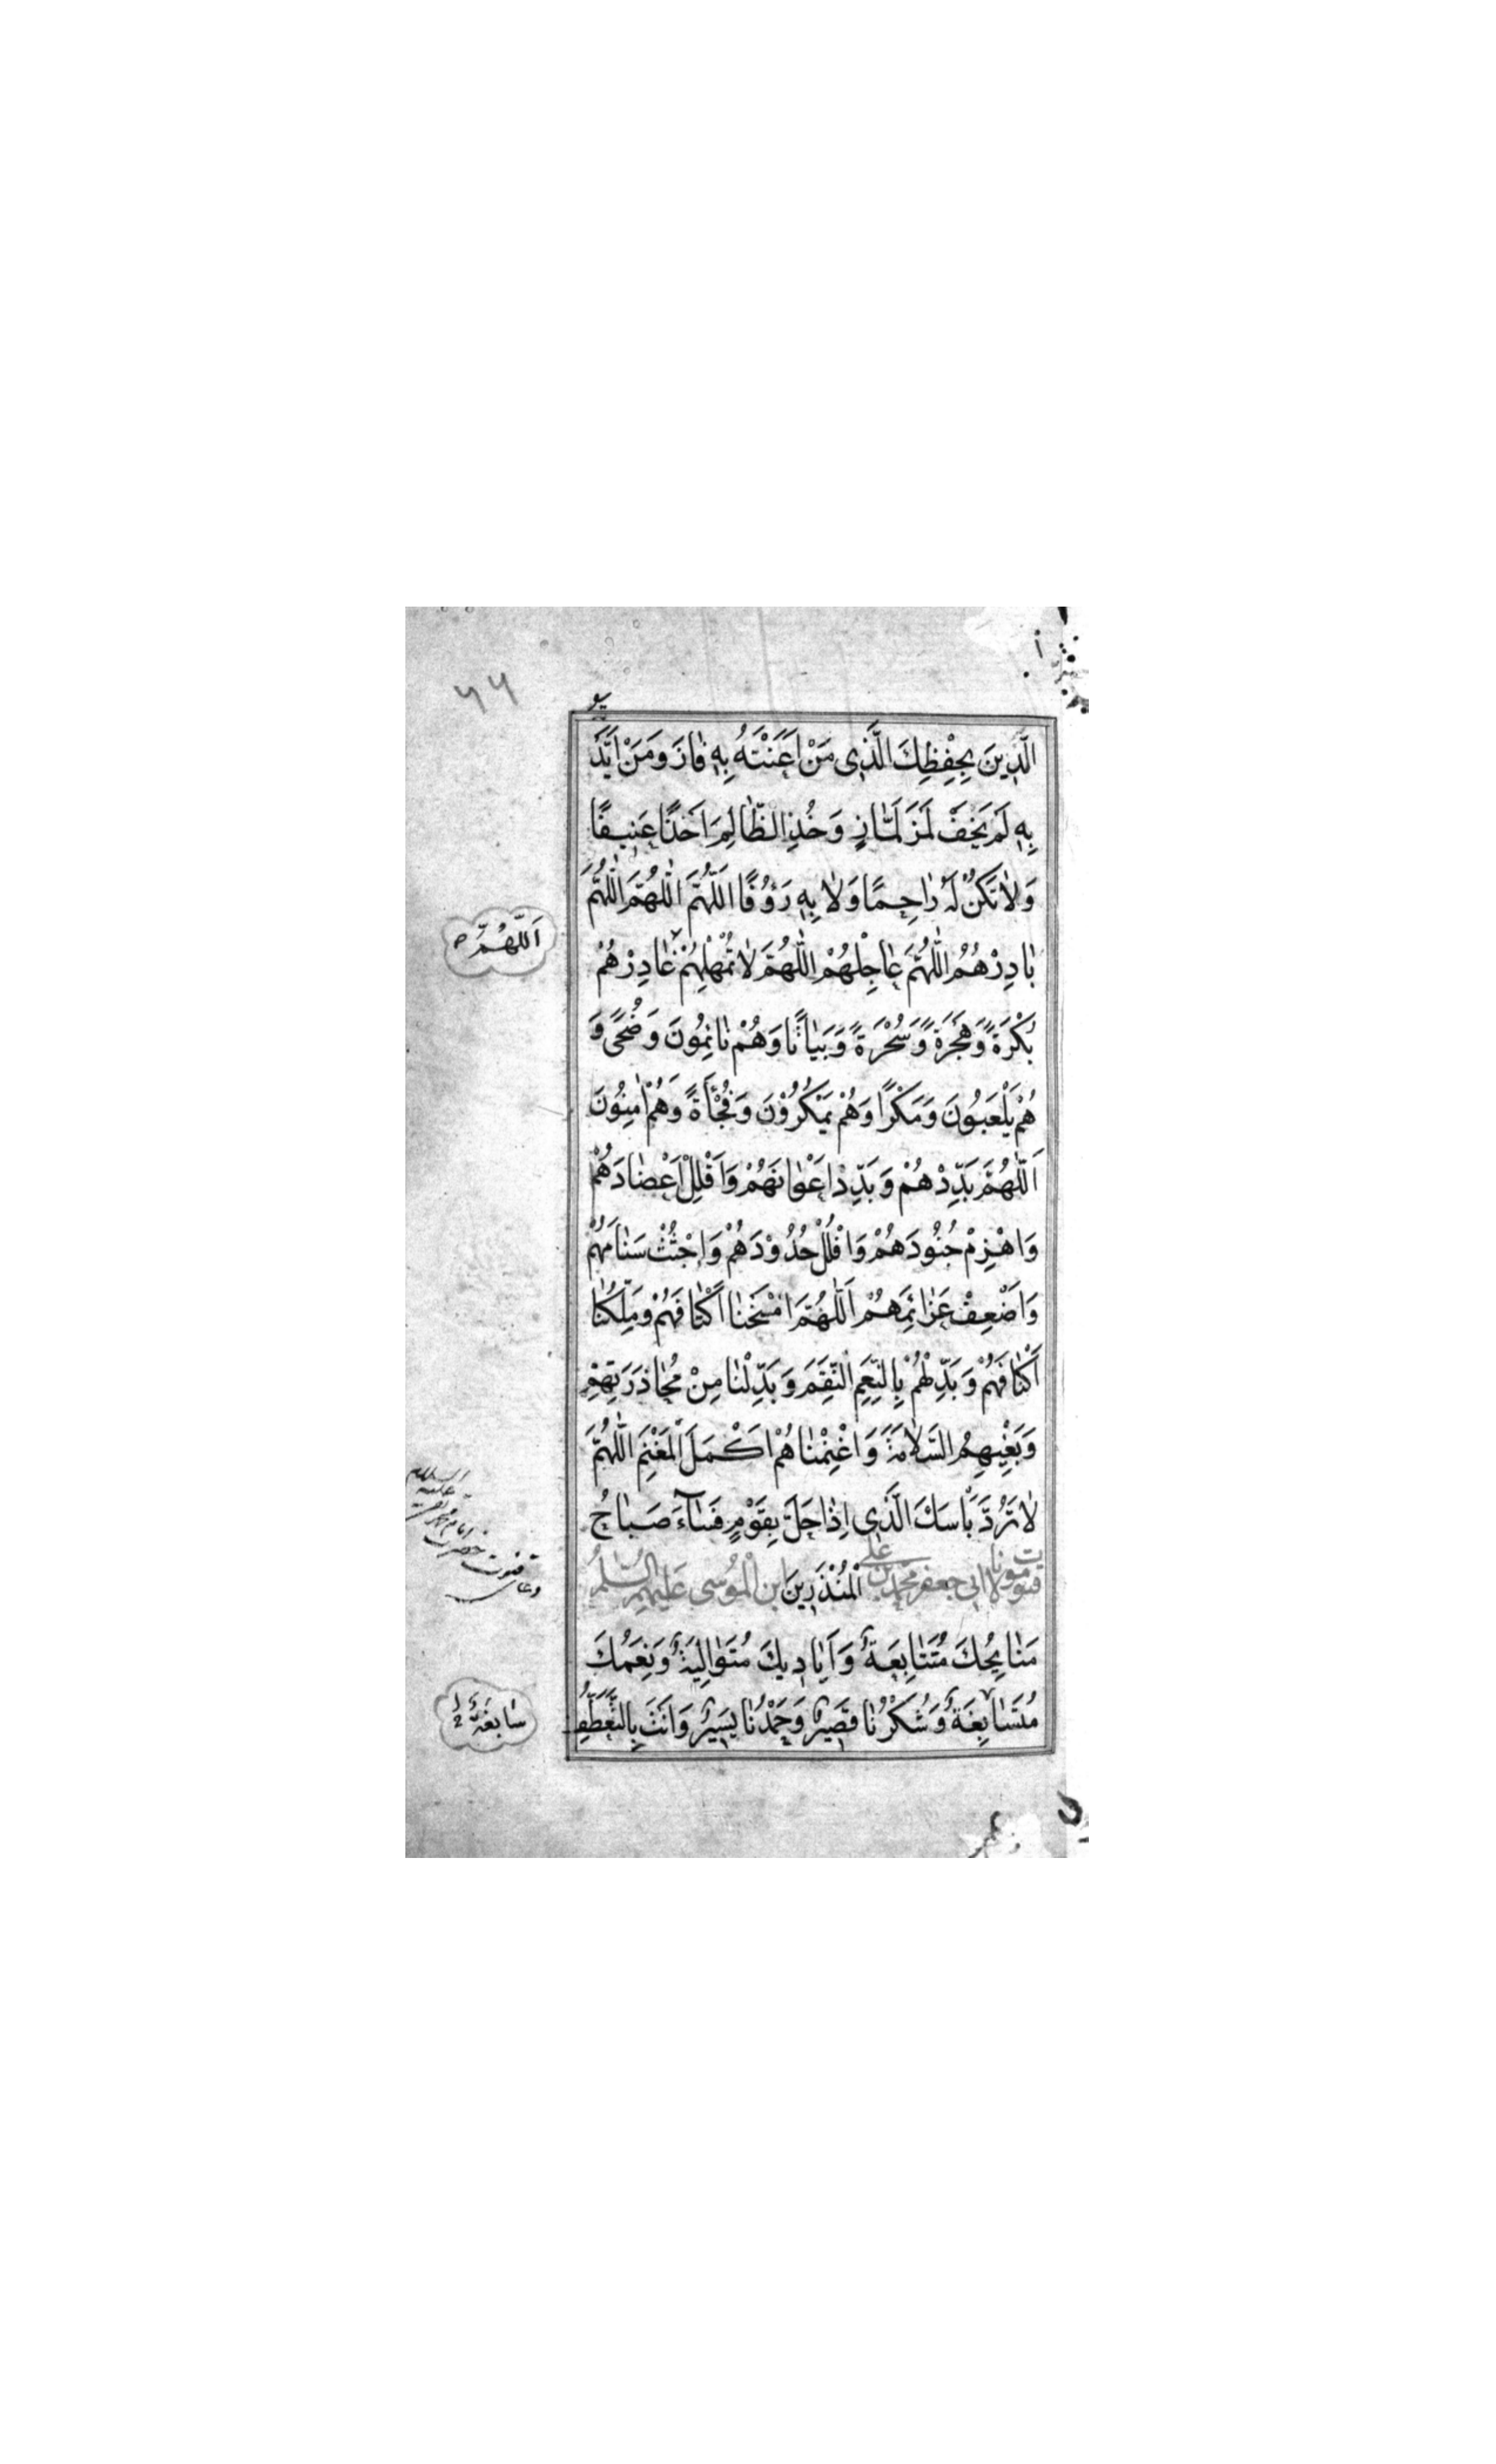 ۵۵
الَّذِينَ بِحِفْظِكَ الَّذِی مَنْ اَعَنْتَهُ بِهِ فَازَ وَمَنْ اَيَّدَ
بِهِ لَمْ يَخَفْ لَمْزَ لَمَّازٍ وَخُذِ الظّالِمَ اَخْذًا عَنِيفًا
وَلَا تَكُنْ لَهُ رَاحِمًا وَلَا بِهِ رَؤُوفًا اَللّٰهُمَّ اللّٰهُمَّ اللّٰهُمَّ
اَللّٰهُمَّ
بَادِرْهُمُ اللّٰهُمَّ عَاجِلْهُمْ اللّٰهُمَّ لَا تُمْهِلْهُمْ غَادِرْهُمْ
بُكْرَةً وَهَجَرَةً وَسُحْرَةً وَبَيَاتًا وَهُمْ نَائِمُونَ وَضُحًى وَ
هُمْ يَلْعَبُونَ وَمَكْرًا وَهُمْ يَمْكُرُوْنَ وَفُجْأَةً وَهُمْ اٰمِنُونَ
اَللّٰهُمَّ بَدِّدْهُمْ وَبَدِّدْ اَعْوَانَهُمْ وَاَفْلِلْ اَعْضَادَهُمْ
وَاهْزِمْ جُنُودَهُمْ وَافْلُلْ حُدُوْدَهُمْ وَاجْتُثْ سَنَامَهُمْ
وَاَضْعِفْ عَزَائِمَهُمْ اَللّٰهُمَّ امْنَحْنَا اَكْتَافَهُمْ وَمَلِّكْنَا
اَكْنَافَهُمْ وَبَدِّلْهُمْ بِالنِّعَمِ النِّقَمَ وَبَدِّلْنَا مِنْ مُحَاذَرَتِهِمْ
وَبَغْيِهِمُ السَّلَامَةَ وَاغْنِمْنَاهُمْ اَكْمَلَ الْمَغْنَمِ اللّٰهُمَّ
لَا تَرُدَّ بَأْسَكَ الَّذِی اِذَا حَلَّ بِقَوْمٍ فَسَآءَ صَبَاحُ
الْمُنْذَرِينَ
قنوت مولانا ابی جعفر محمد بن علی ابن الْمُوسی عَلَيْهِمُ السَّلٰمُ
دعای قنوت حضرت امام محمد تقی علیه السلام
مَنَايِحُكَ مُتَتَابِعَةٌ وَاَيَادِيكَ مُتَوَالِيَةٌ وَنِعَمُكَ
مُتَسَابِغَةٌ وَشُكْرُنَا قَصِيرٌ وَحَمْدُنَا يَسِيرٌ وَاَنْتَ بِالتَّعَطُّفِ
سَابِغَةٌ